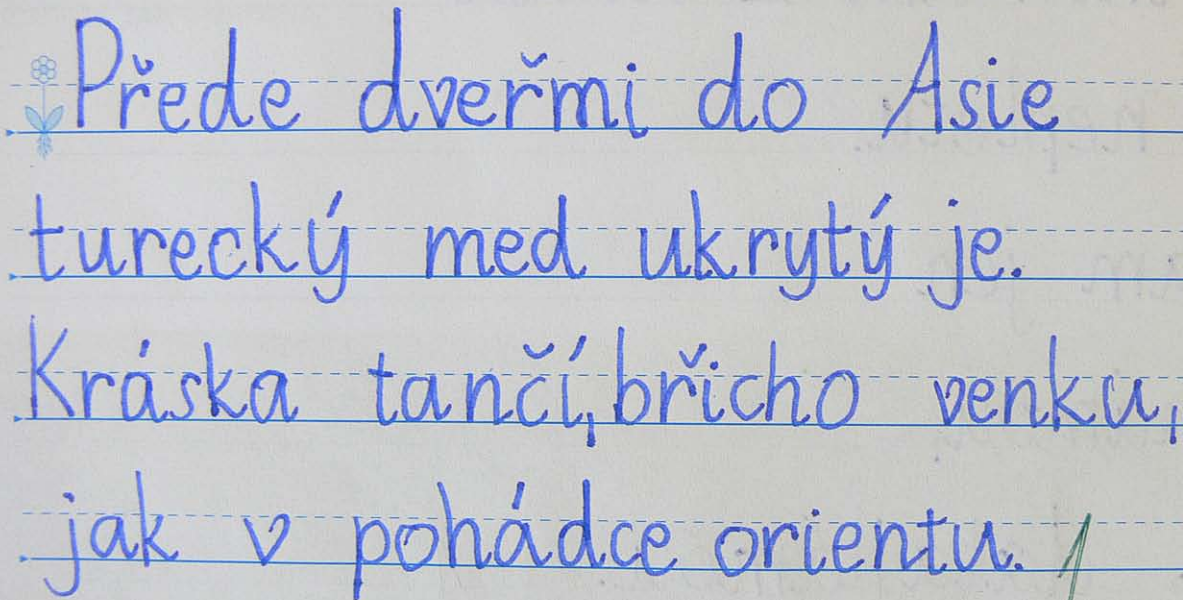 Přede dveřmi do Asie
turecký med ukrytý je.
Kráska tančí, břicho venku,
jak v pohádce orientu. 1